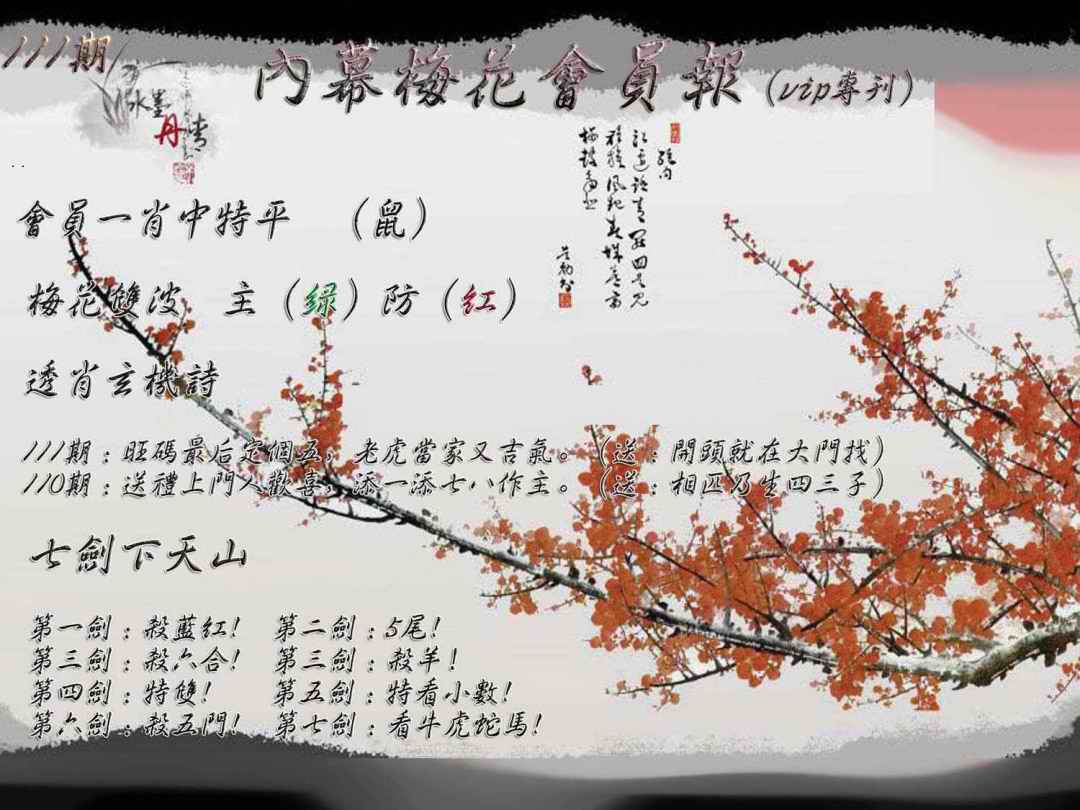 111期
水墨丹青
內幕梅花會員報(vip專刊)
會員一肖中特平 (鼠)
梅花雙波 主(绿)防(红)
透肖玄機詩
111期：旺碼最后定個五，老虎當家又吉氣。(送：開頭就在大門找)
110期：送禮上門人歡喜，添一添七八作主。(送：相匹乃生四三子)
七劍下天山
第一劍：殺藍紅! 第二劍：5尾!
第三劍：殺六合! 第三劍：殺羊!
第四劍：特雙! 第五劍：特看小數!
第六劍：殺五門! 第七劍：看牛虎蛇馬!